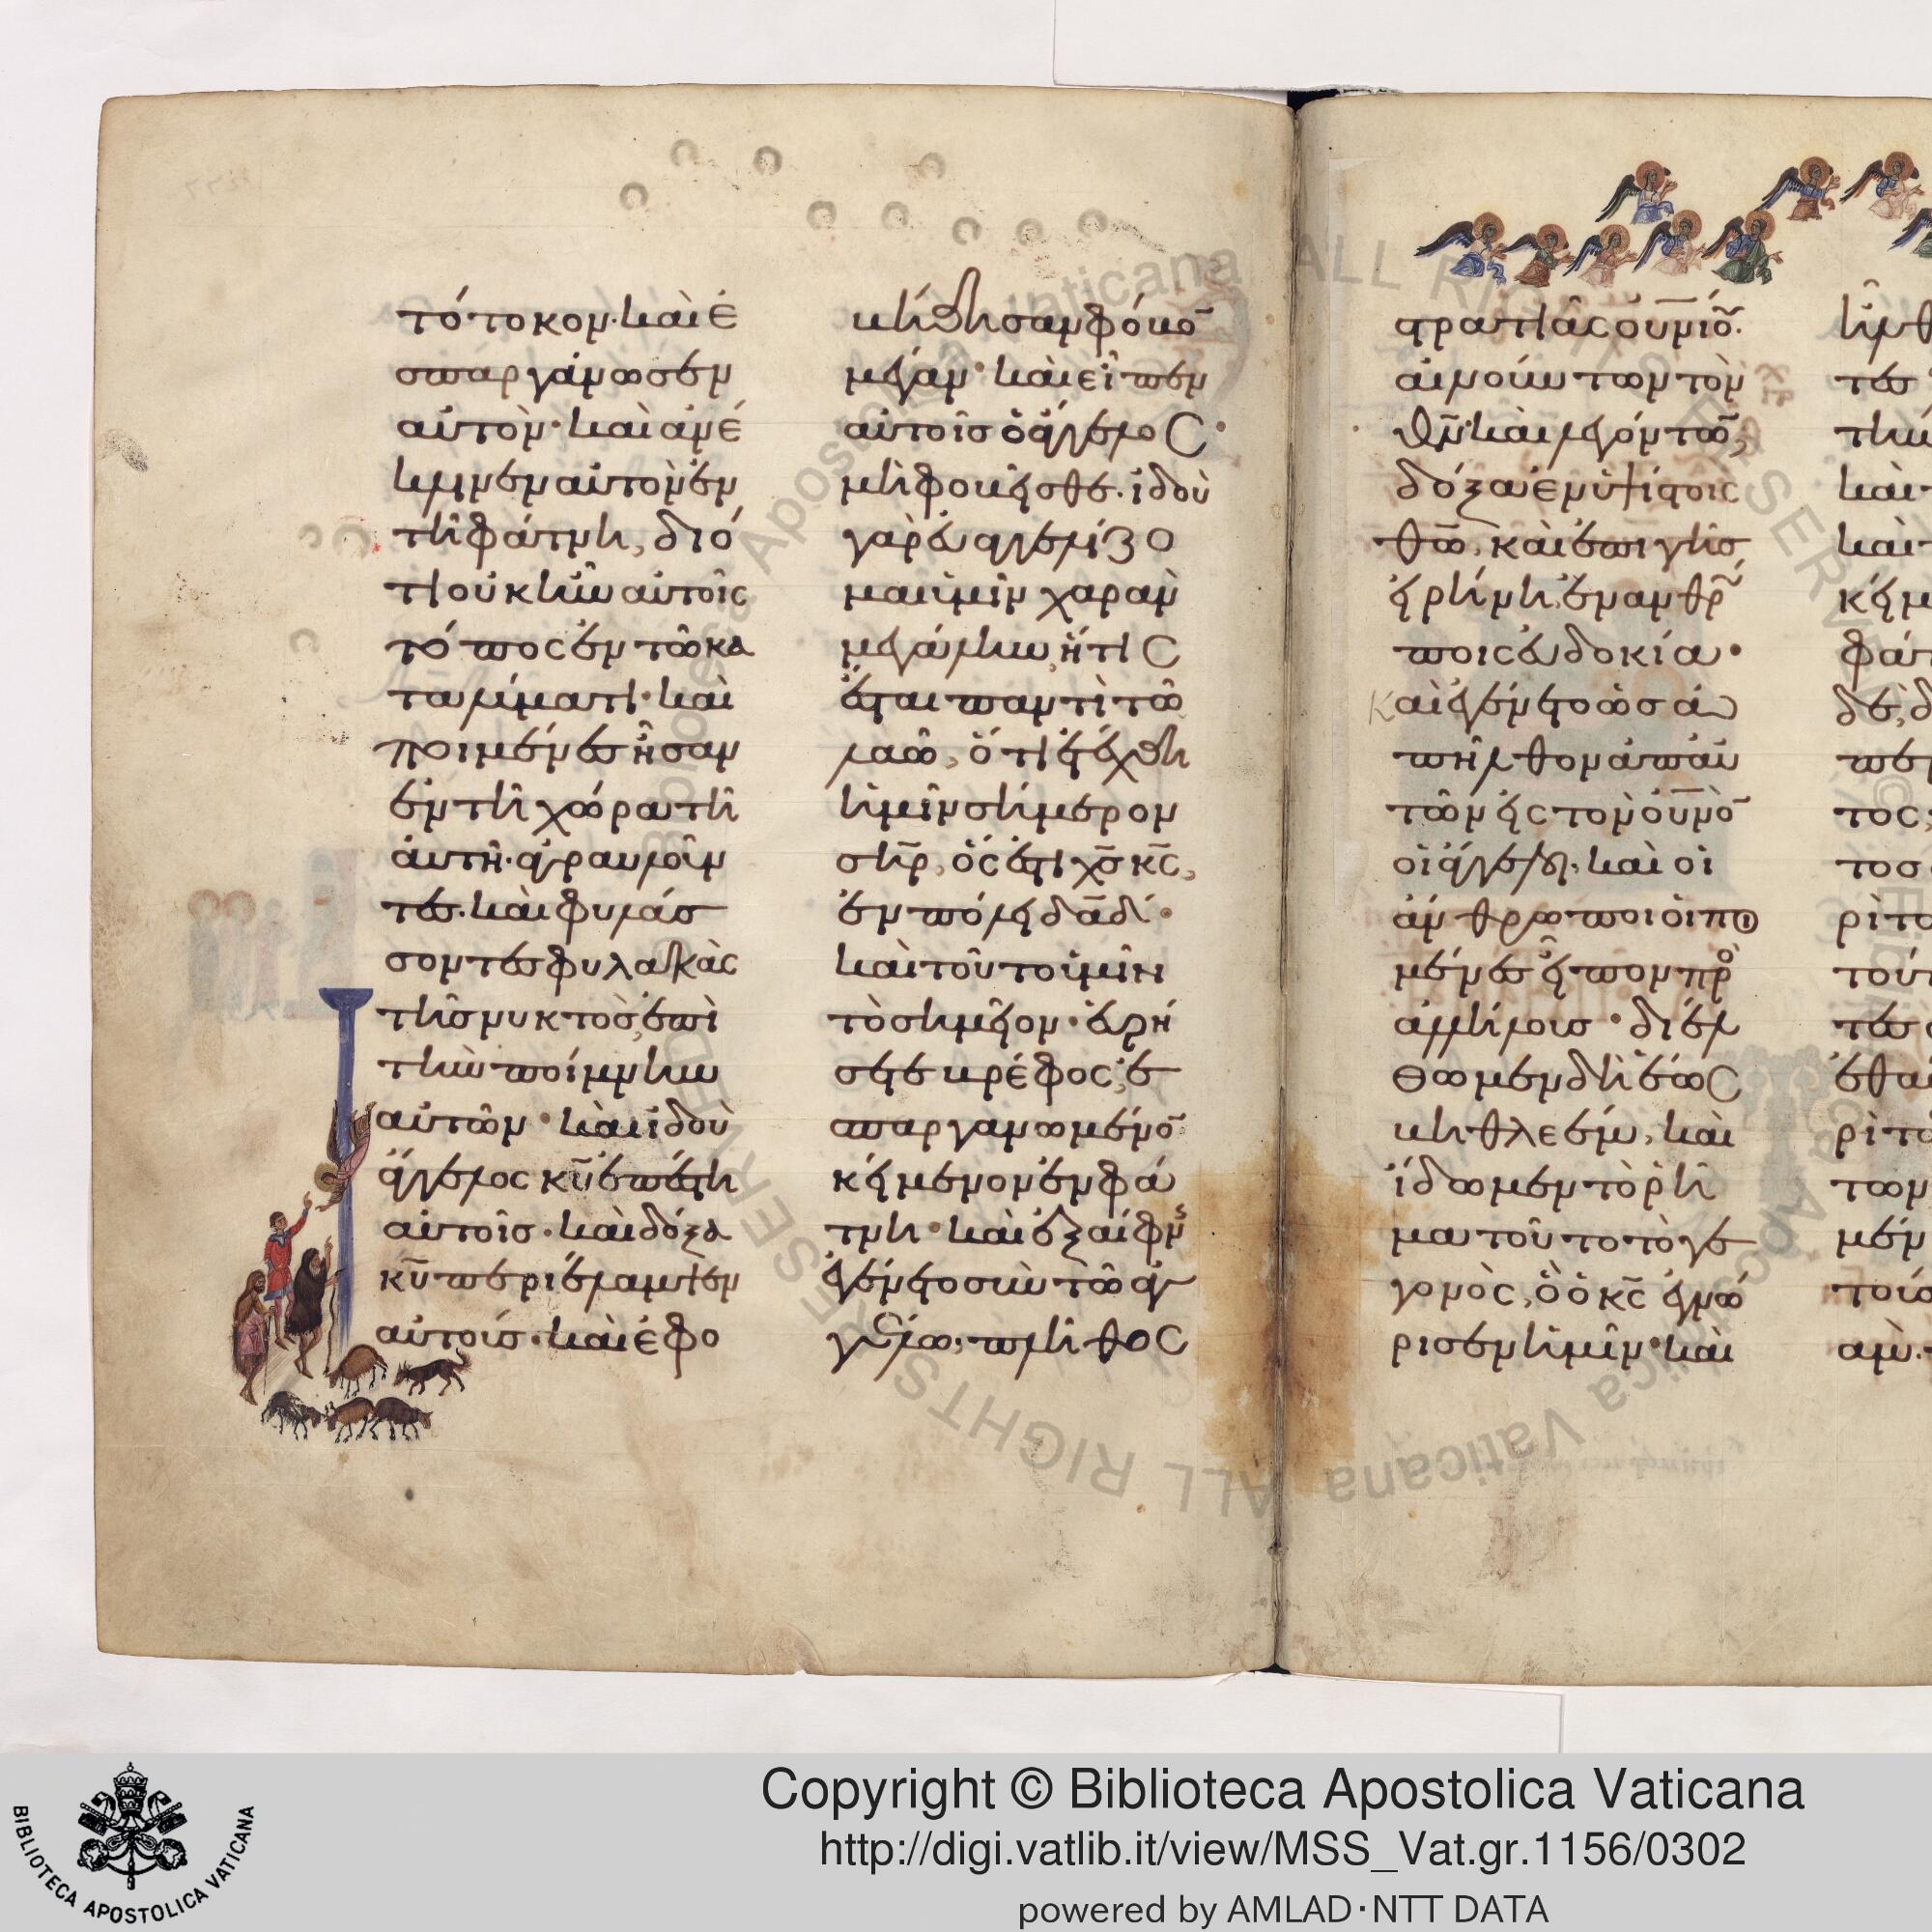 τότοκον· καὶ ἐ
σπαργάνωσεν
αὐτὸν· καὶ ἀνέ
κλινεν αὐτὸν ἐν
τῆ φάτνη, διό
τι οὐκ ἦν αὐτοῖς
τόπος ἐν τῶ κα
ταλύματι· καὶ
ποιμένες ἦσαν
ἐν τῆ χώρα τῆ
αὐτῆ· ἀγραυλοῦν
τες· καὶ φυλάσ
σοντες φυλακὰς
τῆς νυκτὸς, ἐπὶ
τὴν ποίμνην
αὐτῶν· καὶ ἰδοὺ
ἄγγελος κ̅υ̅ ἐπέστη
αὐτοῖς· καὶ δόξα
κ̅υ̅ περιέλαμψεν
αὐτούς· καὶ ἐφο
βήθησαν φόβο̅
μέγαν· καὶ εἶπεν
αὐτοῖς ὁ ἄγγελος·
μὴ φοβεῖσθε· ἰδοὺ
γὰρ εὐαγγελίζο
μαι ὑμῖν χαρὰν
μεγάλην, ἥτις
ἔσται παντὶ τῶ
λαῶ, ὅτι ἐτέχθη
ὑμῖν σήμερον
σ̅η̅ρ̅, ὅς ἐστι χ̅ς̅ κ̅ς̅,
ἐν πόλει δ̅α̅δ̅·
καὶ τοῦτο ὑμῖν
τὸ σημεῖον· εὑρή
σετε βρέφος, ἐ
σπαργανωμένο̅
κείμενον ἐν φά
τνη· καὶ ἐξαίφνς
ἐγένετο σὺν τῶ ἀγ
γέλω, πλῆθος
στρατιᾶς οὐνίο̅·
αἰνούντων τὸν
θ̅ν̅· καὶ λεγόντω̅,
δόξα ἐν ὑψίστοις
θ̅ω̅, καὶ ἐπὶ γῆς
εἰρήνη, ἐν αν̅θ̅ρ̅ώ
ποις εὐδοκία·
Καὶ ἐγένετο ὡς ἀ
πῆλθον ἀπ' αὐ
τῶν εἰς τὸν οὐ̅ν̅ο̅
οἱ ἄγγελοι, καὶ οἱ
ἄνθρωποι οἱ ποι
μένες εἶπον πρὸ
ἀλλήλους· διέλ
θωμεν δὴ ἕως
βηθλεέμ, καὶ
ἴδωμεν τὸ ῥῆ
μα τοῦτο τὸ γε
γονὸς, ὃ ὁ κ̅ς̅ ἐγνώ
ρισεν ἡμῖν· καὶ
Copyright © Biblioteca Apostolica Vaticana
http://digi.vatlib.it/view/MSS_Vat.gr.1156/0302
powered by AMLAD·NTT DATA
BIBLIOTECA APOSTOLICA VATICANA